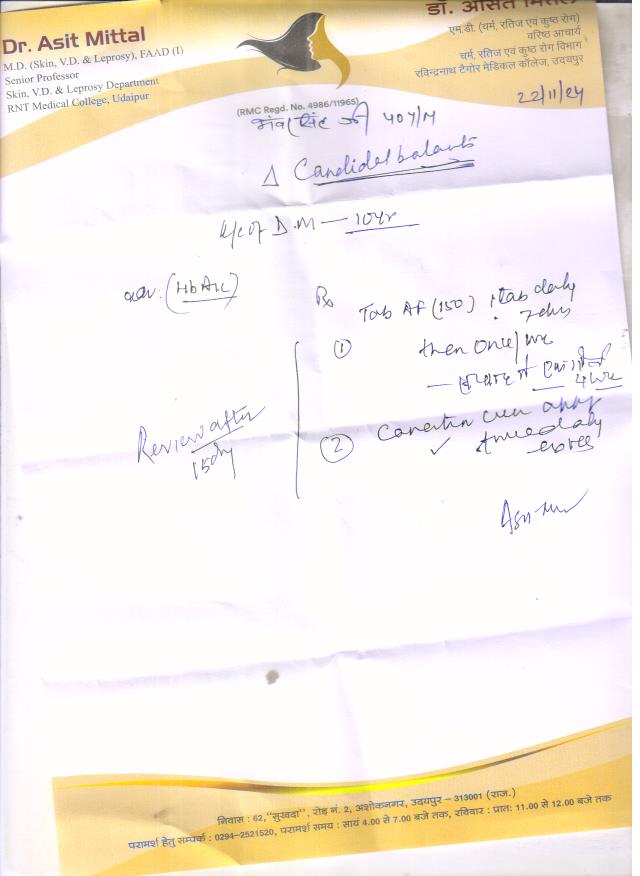 Dr. Asit Mittal
M.D. (Skin, V.D. & Leprosy), FAAD (I)
Senior Professor
Skin, V.D. & Leprosy Department
RNT Medical College, Udaipur
डॉ. असित मित्तल
एम.डी. (चर्म, रतिज एवं कुष्ठ रोग)
वरिष्ठ आचार्य
चर्म, रतिज एवं कुष्ठ रोग विभाग
रविन्द्रनाथ टैगोर मेडिकल कॉलेज, उदयपुर
22/11/24
(RMC Regd. No. 4986/11965)
सिंह जी 40Y/M
Δ Candidal
k/c of D.M — 10yr
adv: (HbA1c)
Rx
Tab AF (150) 1 tab daily
7 days
① then once/wk
4 wk
Review after
15 day
② cream apply
✓ daily
निवास : 62, "सुखवा", रोड़ नं. 2, अशोकनगर, उदयपुर – 313001 (राज.)
परामर्श हेतु सम्पर्क : 0294-2521520, परामर्श समय : सायं 4.00 से 7.00 बजे तक, रविवार : प्रातः 11.00 से 12.00 बजे तक